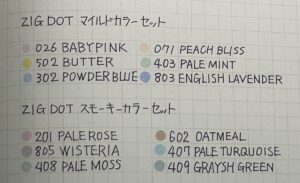 ZIG DOT マイルドカラーセット
026 BABYPINK 071 PEACH BLISS
502 BUTTER 403 PALE MINT
302 POWDER BLUE 803 ENGLISH LAVENDER
ZIG DOT スモーキーカラーセット
201 PALE ROSE 602 OATMEAL
805 WISTERIA 407 PALE TURQUOISE
408 PALE MOSS 409 GRAYSH GREEN